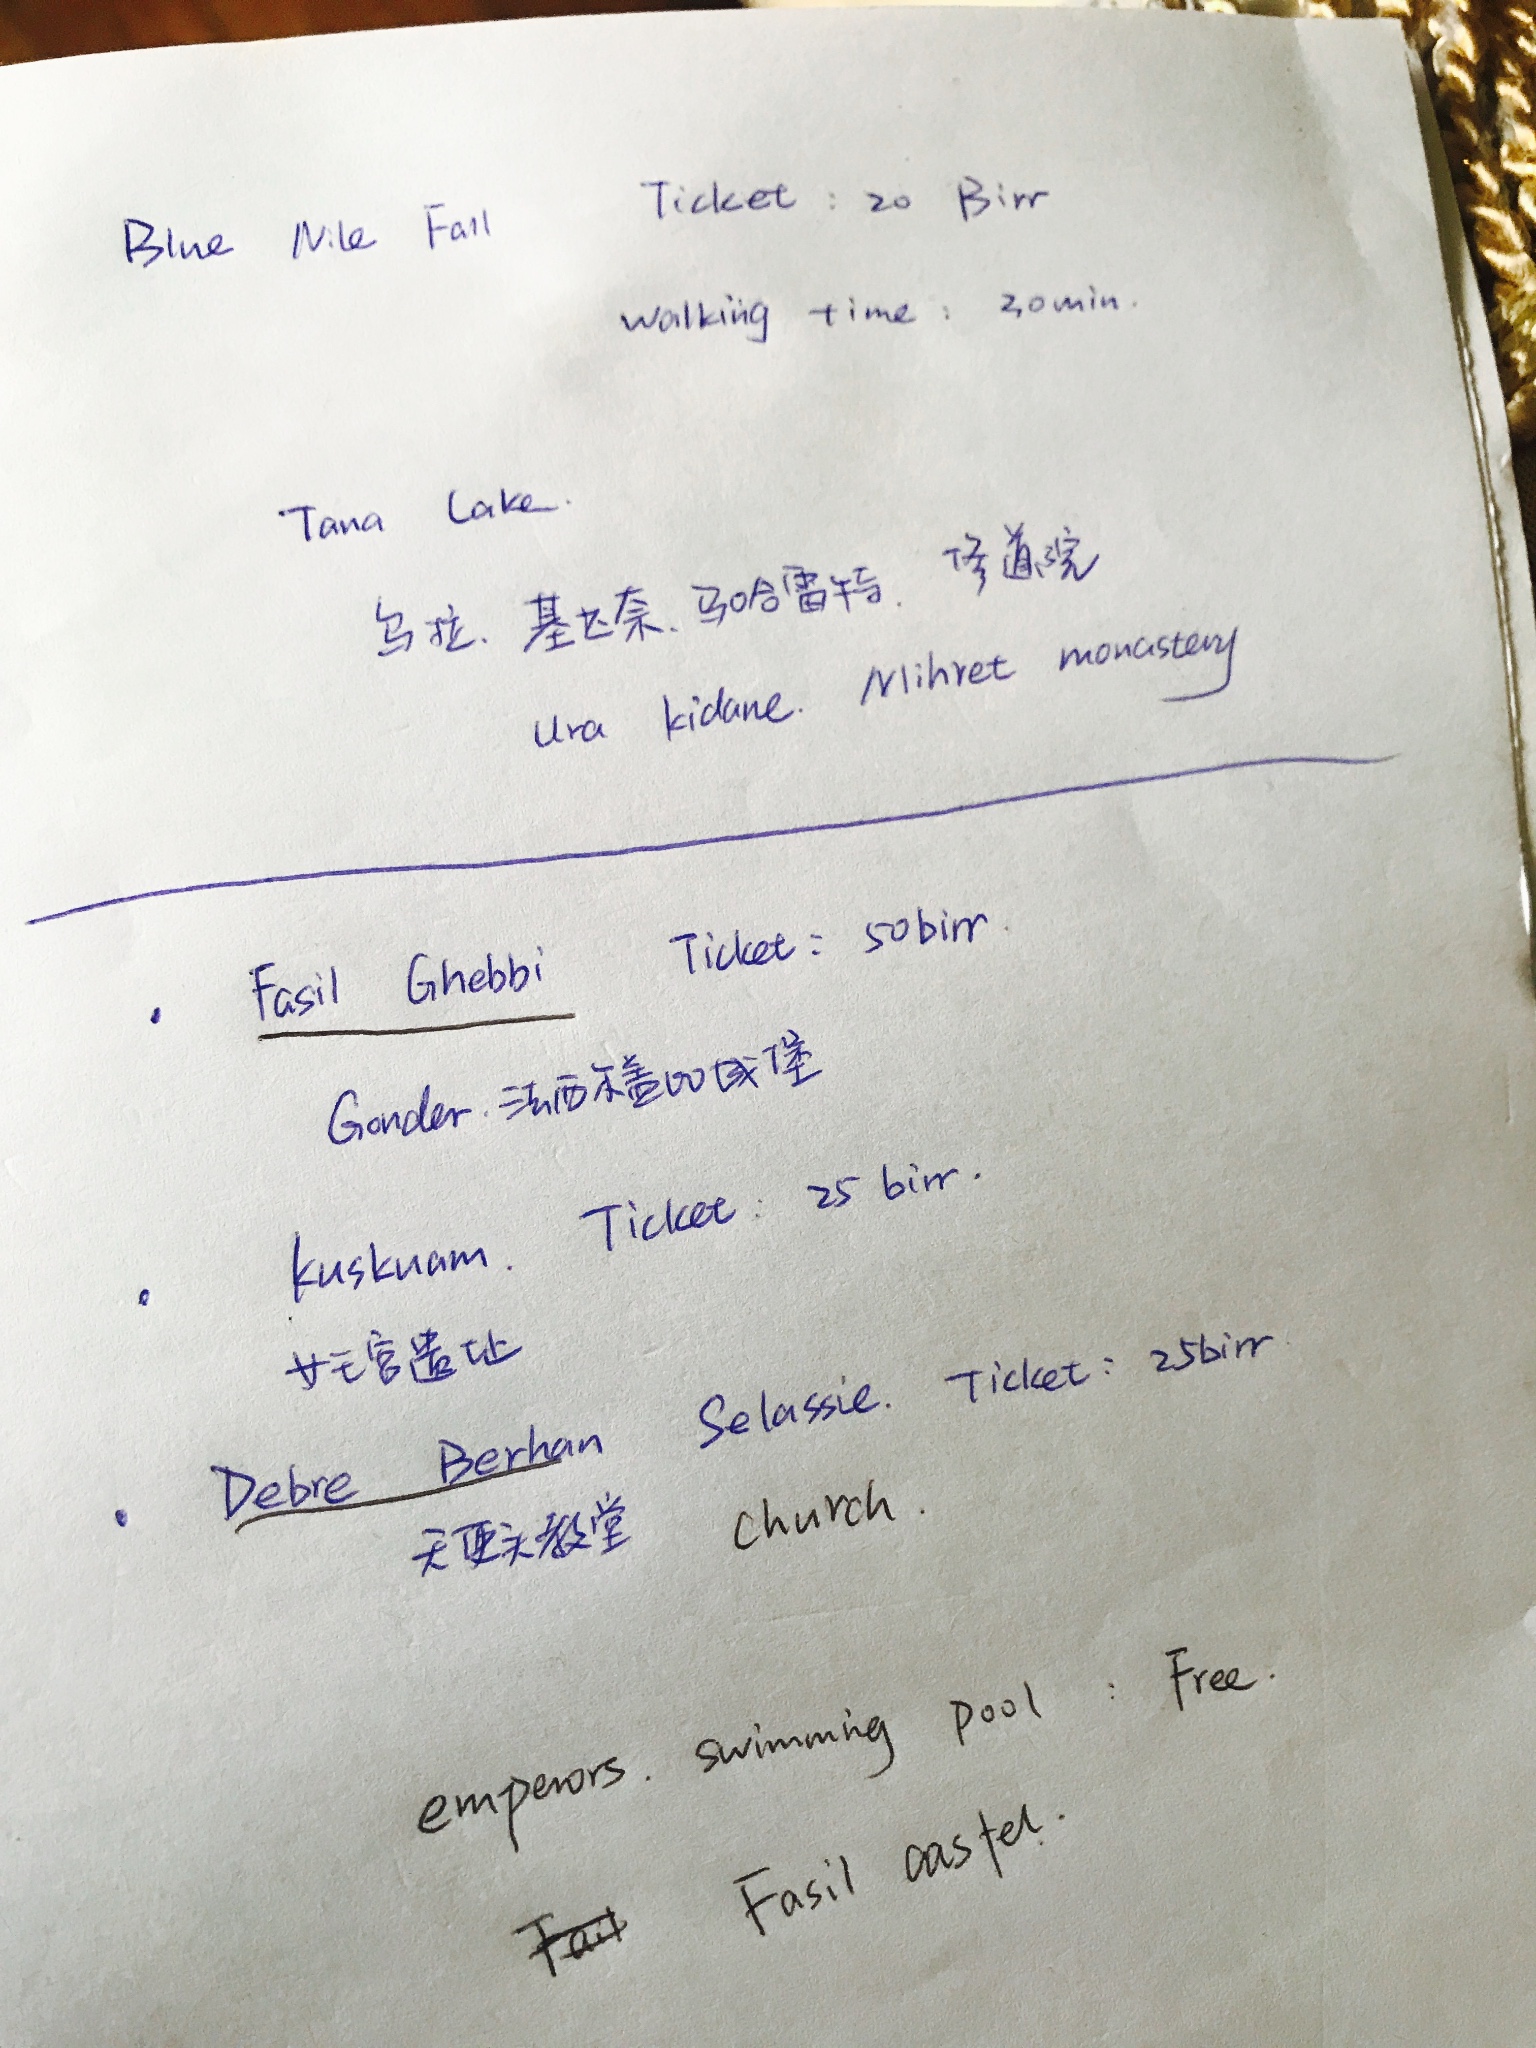 Blue Nile Fall Ticket : 20 Birr
walking time : 30min.
Tana Lake.
乌拉、基达奈、马哈雷特. 修道院
Ura kidane. Mihret monastery
· Fasil Ghebbi Ticket: 50birr.
Gonder. 法西尔盖比城堡
· kuskuam. Ticket: 25 birr.
女王宫遗址
· Debre Berhan Selassie. Ticket: 25birr.
天使头教堂 church.
emperors. swimming pool : Free.
Fasil castel.